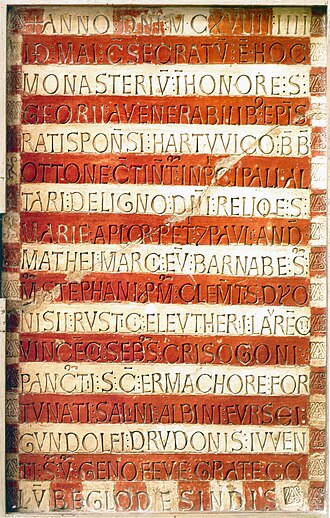 + ANNO : DNI : M : C XVIIII : IIII
ID : MAI : C̄SECRATV̄ E HOC
MONASTERIV̄ : Ī HONORE : S :
GEORII A VENERABILIB; EPIS
RATISPOÑSI : HARTVVICO : B̄B̄
OTTONE CTINT : IN PCIPALI : AL
TARI DE LIGNO : DN̄I : RELIQE S :
MARIE APLOR PET 7 PAVL : AND
MATHEI : MARC : EV̄ : BARNABE : S̄
M̄ STEPHANI : PM̄ CLEM̄TS DYO
NISII : RVSTICI : ELEVTHERI : LAVRE
VINCE : SEB : S : CRISOGONI :
PANC̄TI : S : C̄ : ERMACHORE FOR
TVNATI : SALNI : ALBINI : FVRSEI :
GVNDOLFI : DRVDONIS : IVVEN
TI : S : V̄ : GENOFEVE : GRATE CO
LV̄BE GLODESINDIS